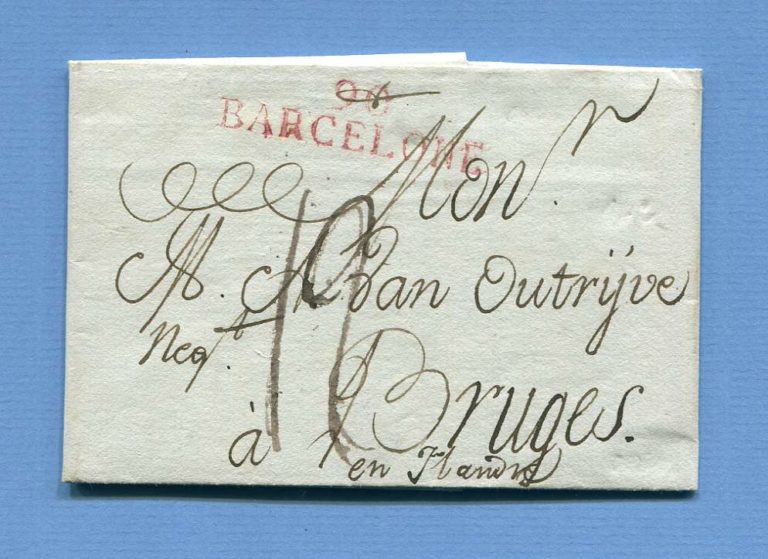 96
BARCELONE
Monr.
M. A. Van Outrijve
Negt.
Bruges.
à
en Flandre